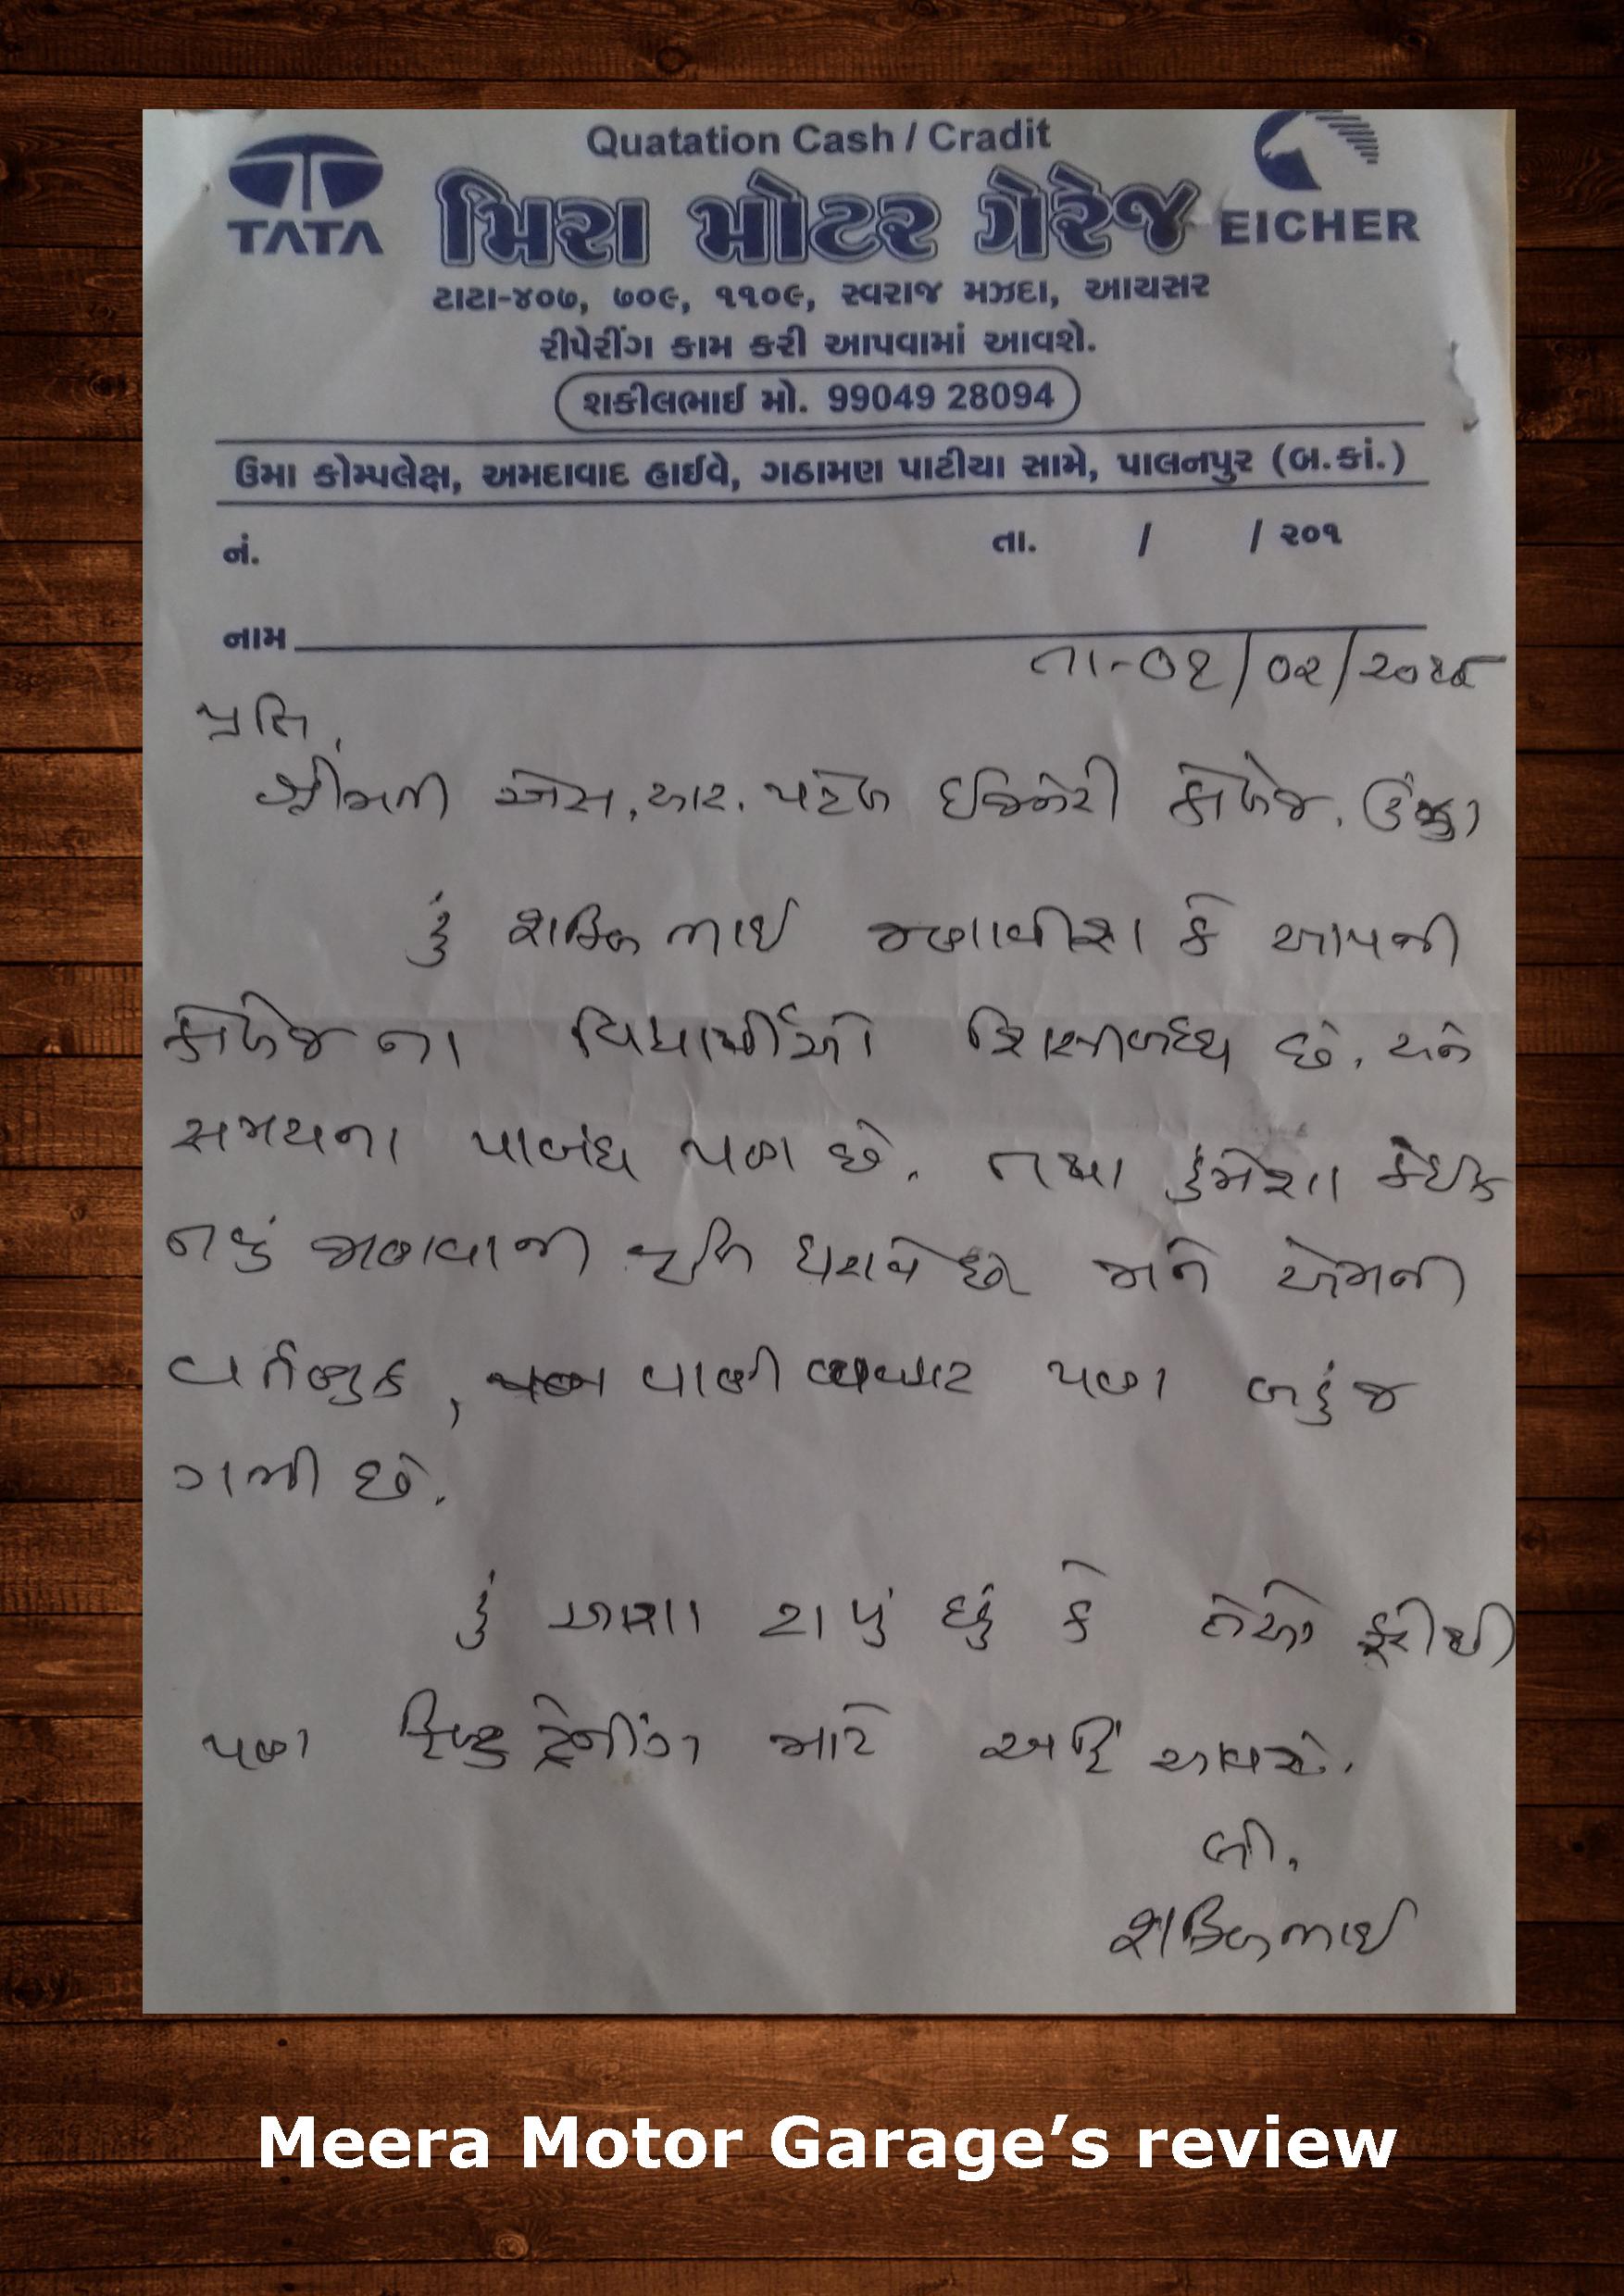 Quatation Cash / Cradit
TATA
EICHER
મિરા મોટર ગેરેજ
ટાટા-૪૦૭, ૭૦૯, ૧૧૦૯, સ્વરાજ મઝદા, આયસર
રીપેરીંગ કામ કરી આપવામાં આવશે.
શકીલભાઈ મો. 99049 28094
ઉમા કોમ્પલેક્ષ, અમદાવાદ હાઈવે, ગઠામણ પાટીયા સામે, પાલનપુર (બ.કાં.)
નં. તા. / / ૨૦૧
નામ
તા-૦૧/૦૨/
પ્રતિ,
શ્રીમતી એસ.આર. પટેલ ઈજનેરી કોલેજ, ઉંઝા
હું શકિલ ભાઈ જણાવીશ કે આપની
કોલેજ ના વિધાર્થીઓ શિસ્તબધ્ધ છે. અને
સમયના પાબંધ પણ છે. તથા હંમેશા કંઈક
નવું જાણવાની ધરાવે છે અને એમની
વર્તણુક, વાણી પણ બહુંજ
ગમી છે.
હું આશા રાખું છું કે તેઓ ફરીથી
પણ ફિલ્ડ ટ્રેનીંગ માટે અહિં આવશે.
લી.
શકિલભાઈ
Meera Motor Garage’s review